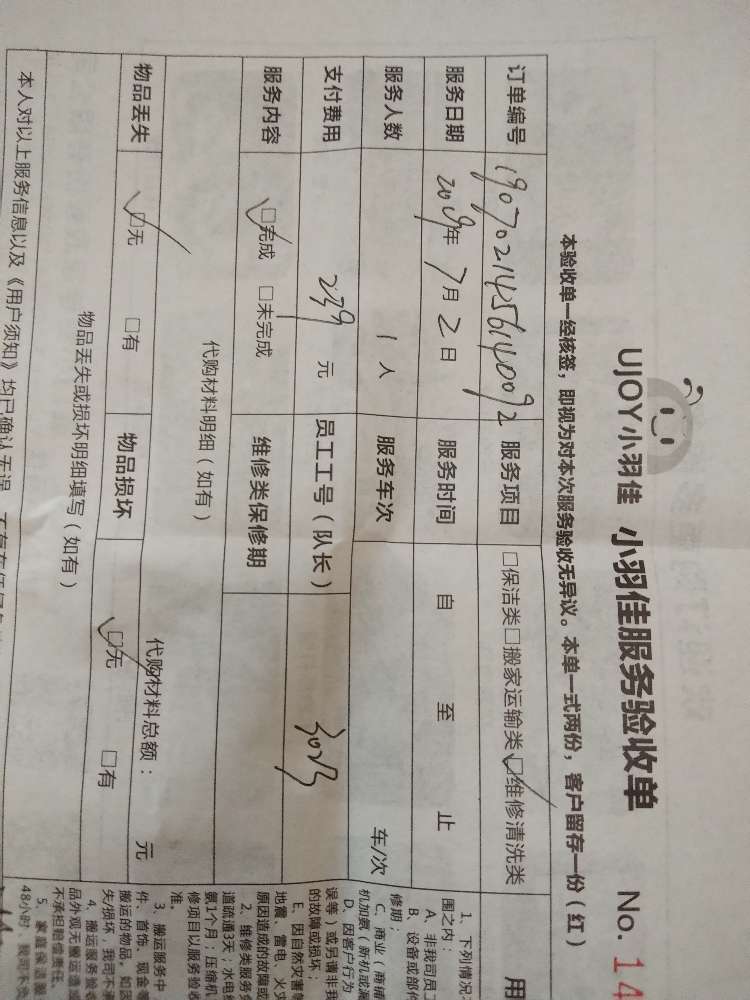 UJOY小羽佳 小羽佳服务验收单 No. 14
本验收单一经核签，即视为对本次服务验收无异议。本单一式两份，客户留存一份（红）
订单编号 1907021456140092 服务项目 □保洁类□搬家运输类□维修清洗类
服务日期 2019年 7月 2日 服务时间 自 至 止
服务人数 1人 服务车次 车/次
支付费用 239 元 员工工号（队长） 3023
服务内容 □完成 □未完成 维修类保修期
代购材料明细（如有） 代购材料总额： 元
物品丢失 □无 □有 物品损坏 □无 □有
物品丢失或损坏明细填写（如有）
本人对以上服务信息以及《用户须知》均已确认无误
用
1、下列情况
围之内：
A、非我司员工
B、设备或部件
修期；
C、商业（商铺
机加氨（新机或漏
D、因客户行为
误等）或另请非我
的故障或损坏；
E、因自然灾害等
地震、雷电、火灾
原因造成的故障或
2、维修类服务
道疏通3天；水电维
氨1个月；压缩机
修项目以服务验收
准。
3、搬运服务中
件、首饰、现金等
搬运的物品，如因
失/损坏，我司不承
4、搬运服务验收
品外观无搬运造成
不承担赔偿责任。
5、家庭保洁服
48小时